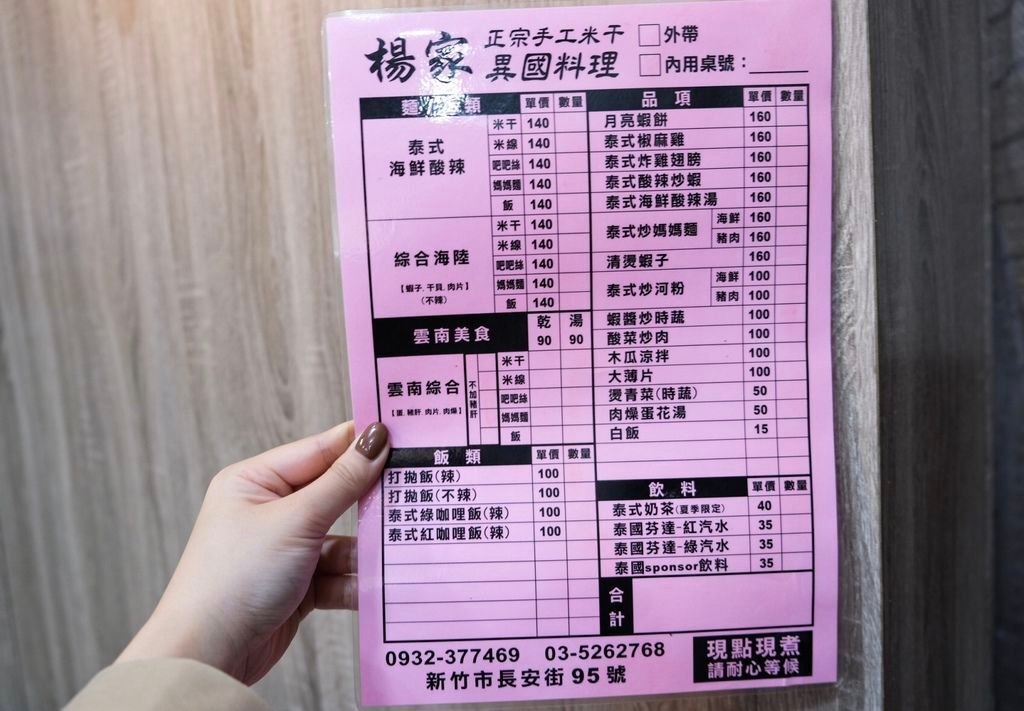 楊家 正宗手工米干 異國料理
□外帶
□內用桌號：
麵 類 單價 數量
泰式海鮮酸辣
米干 140
米線 140
吧吧絲 140
媽媽麵 140
飯 140
綜合海陸
【蝦子.干貝.肉片】
(不辣)
米干 140
米線 140
吧吧絲 140
媽媽麵 140
飯 140
雲南美食 乾 湯
90 90
雲南綜合
【蛋.豬肝.肉片.肉燥】
不加豬肝
米干
米線
吧吧絲
媽媽麵
飯
飯 類 單價 數量
打拋飯(辣) 100
打拋飯(不辣) 100
泰式綠咖哩飯(辣) 100
泰式紅咖哩飯(辣) 100
品 項 單價 數量
月亮蝦餅 160
泰式椒麻雞 160
泰式炸雞翅膀 160
泰式酸辣炒蝦 160
泰式海鮮酸辣湯 160
泰式炒媽媽麵 海鮮 160
豬肉 160
清燙蝦子 160
泰式炒河粉 海鮮 100
豬肉 100
蝦醬炒時蔬 100
酸菜炒肉 100
木瓜涼拌 100
大薄片 100
燙青菜(時蔬) 50
肉燥蛋花湯 50
白飯 15
飲 料 單價 數量
泰式奶茶(夏季限定) 40
泰國芬達-紅汽水 35
泰國芬達-綠汽水 35
泰國sponsor飲料 35
合計
0932-377469 03-5262768
新竹市長安街 95 號
現點現煮
請耐心等候